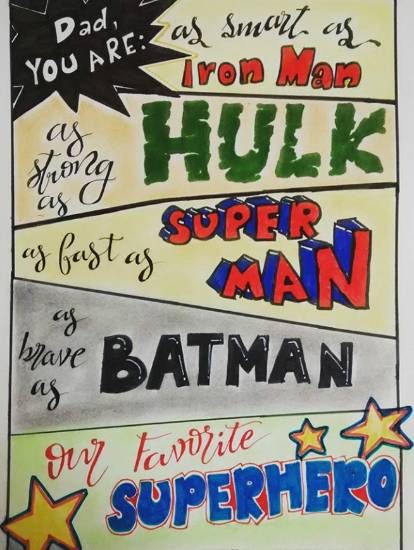 Dad,
YOU ARE:
as smart as
Iron Man
as
strong
as
HULK
as fast as
SUPER
MAN
as
brave
as
BATMAN
our favorite
SUPERHERO